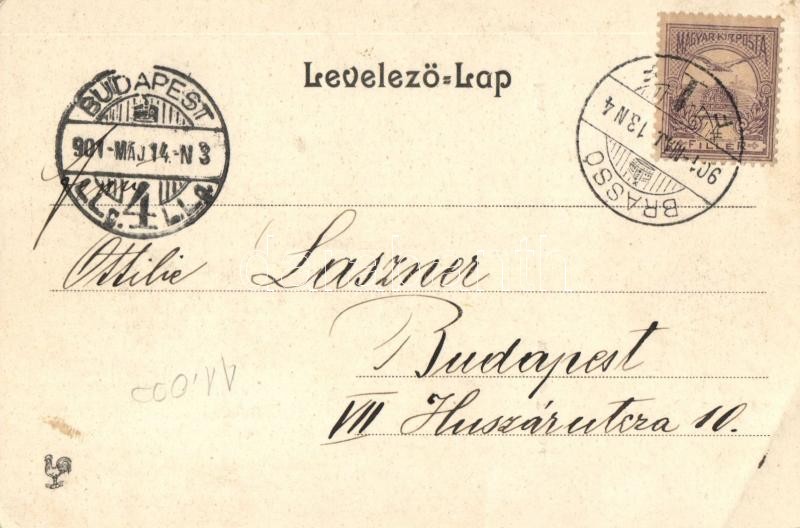 Levelező=Lap
MAGYAR KIR. POSTA
FILLÉR
BUDAPEST
901-MÁJ.14.-N3
4
BRASSÓ
901-MÁJ. 13 N4
Ottilie Laszner
Budapest
VII Huszárutcza 10.